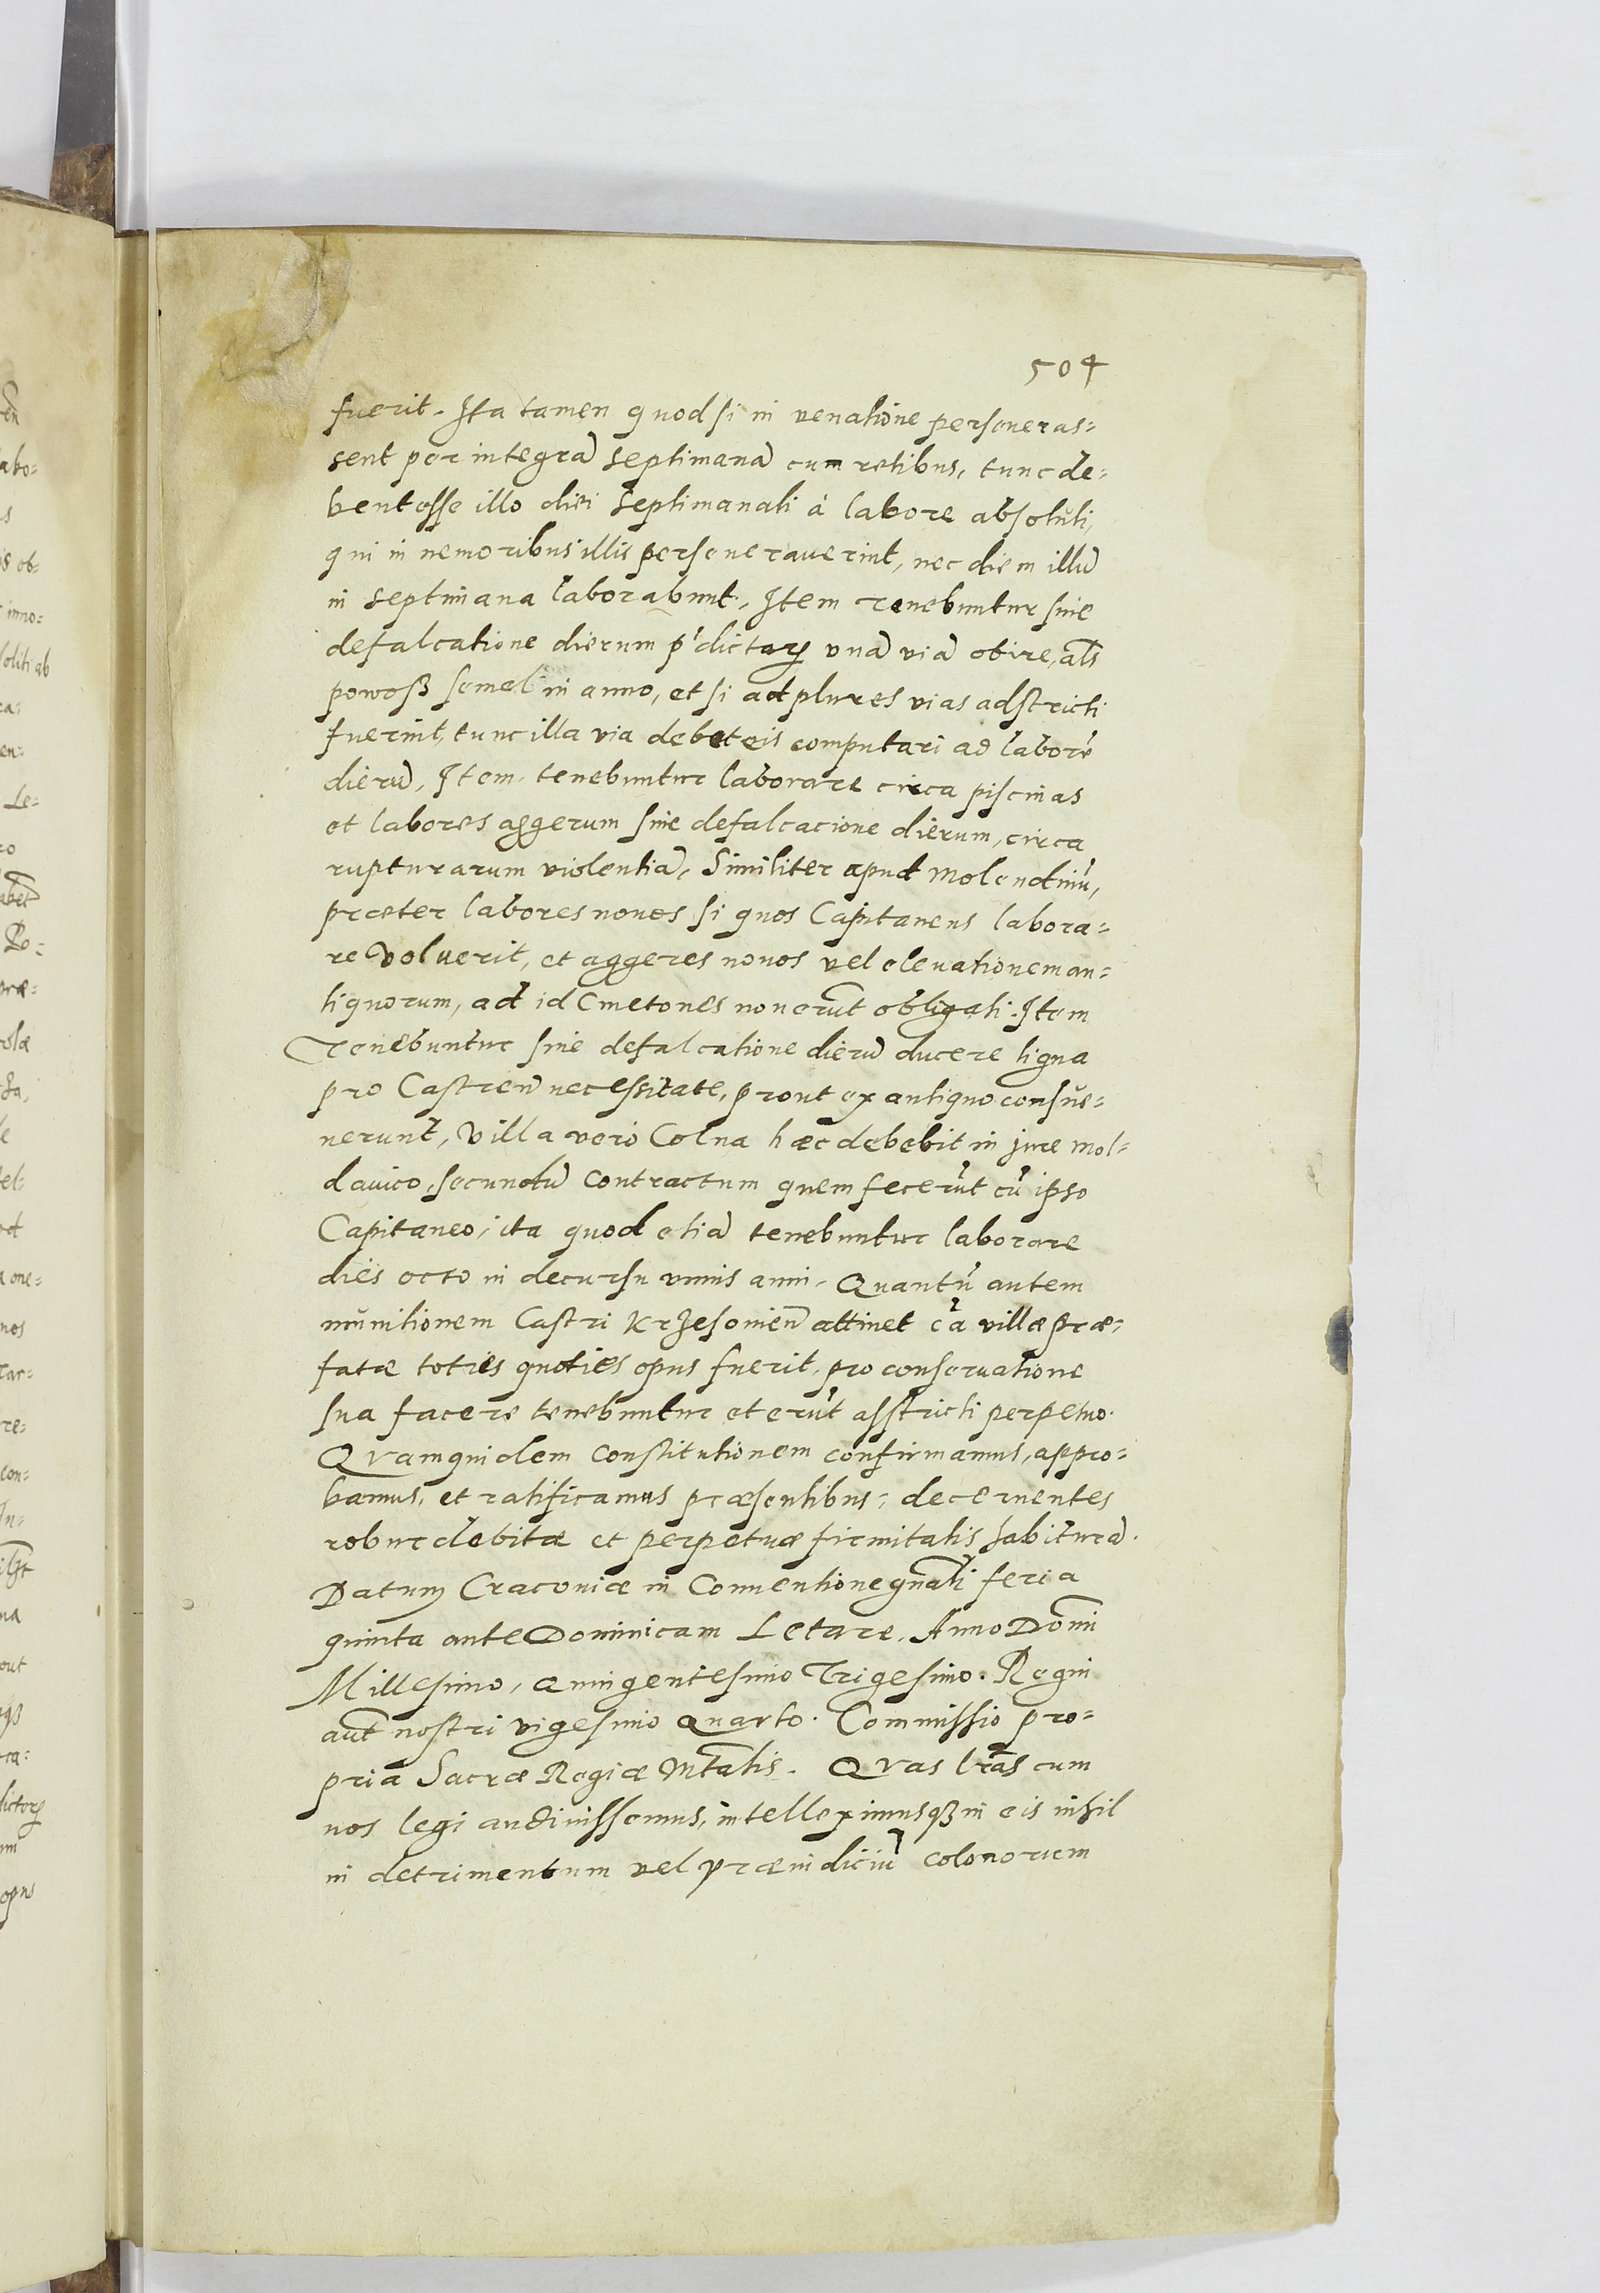 504
fuerit. Ita tamen quod si in venatione perseueras=
sent per integrā septimanā cum retibus, tunc de=
bent esse illo diei septimanali à labore absoluti,
qui in nemoribus illis perseuerauerint, nec diem illū
in septimana laborabunt. Item tenebuntur sine
defalcatione dierum p'dictarꝝ vnā viā obire, als
powoß semel in anno, et si ad plures vias adstricti
fuerint, tunc illa via debet eis computari ad laborē
dierū, Item tenebuntur laborare circa piscinas
et labores aggerum sine defalcacione dierum, circa
rupturarum violentiā, Similiter apud molendinū,
præter labores nouos si quos Capitaneus labora=
re voluerit, et aggeres nouos vel eleuationem an=
tiquorum, ad id Cmetones non erūt obligati. Item
Tenebuntur sine defalcatione dierū ducere ligna
pro Castreñ necessitate, prout ex antiquo consue=
uerunt, Villa vero Colna hæc debebit in jure mol=
dauico, secundū contractum quem fecerūt cū ipso
Capitaneo, ita quod etiā tenebuntur laborare
dies octo in decursu vnius anni. Quantū autem
munitionem Castri Krzesouieñ attinet eā villæ præ=
fatæ toties quoties opus fuerit, pro conseruatione
sua facere tenebuntur et erūt asstricti perpetuo.
Quamquidem constitutionem confirmamus, appro=
bamus, et ratificamus præsentibus, decernentes
robur debitæ et perpetuæ firmitatis habiturā.
Datum Cracouiæ in Conuentione gñali feria
quinta ante Dominicam Letare, Anno Domi
Millesimo, Quingentesimo Trigesimo. Regni
aut nostri vigesimo quarto. Commissio pro=
pria Sacræ Regiæ Mtatis. Quas lras cum
nos legi audiuissemus, intelleximusqꝫ in eis nihil
in detrimentum vel præiudiciū colonorum